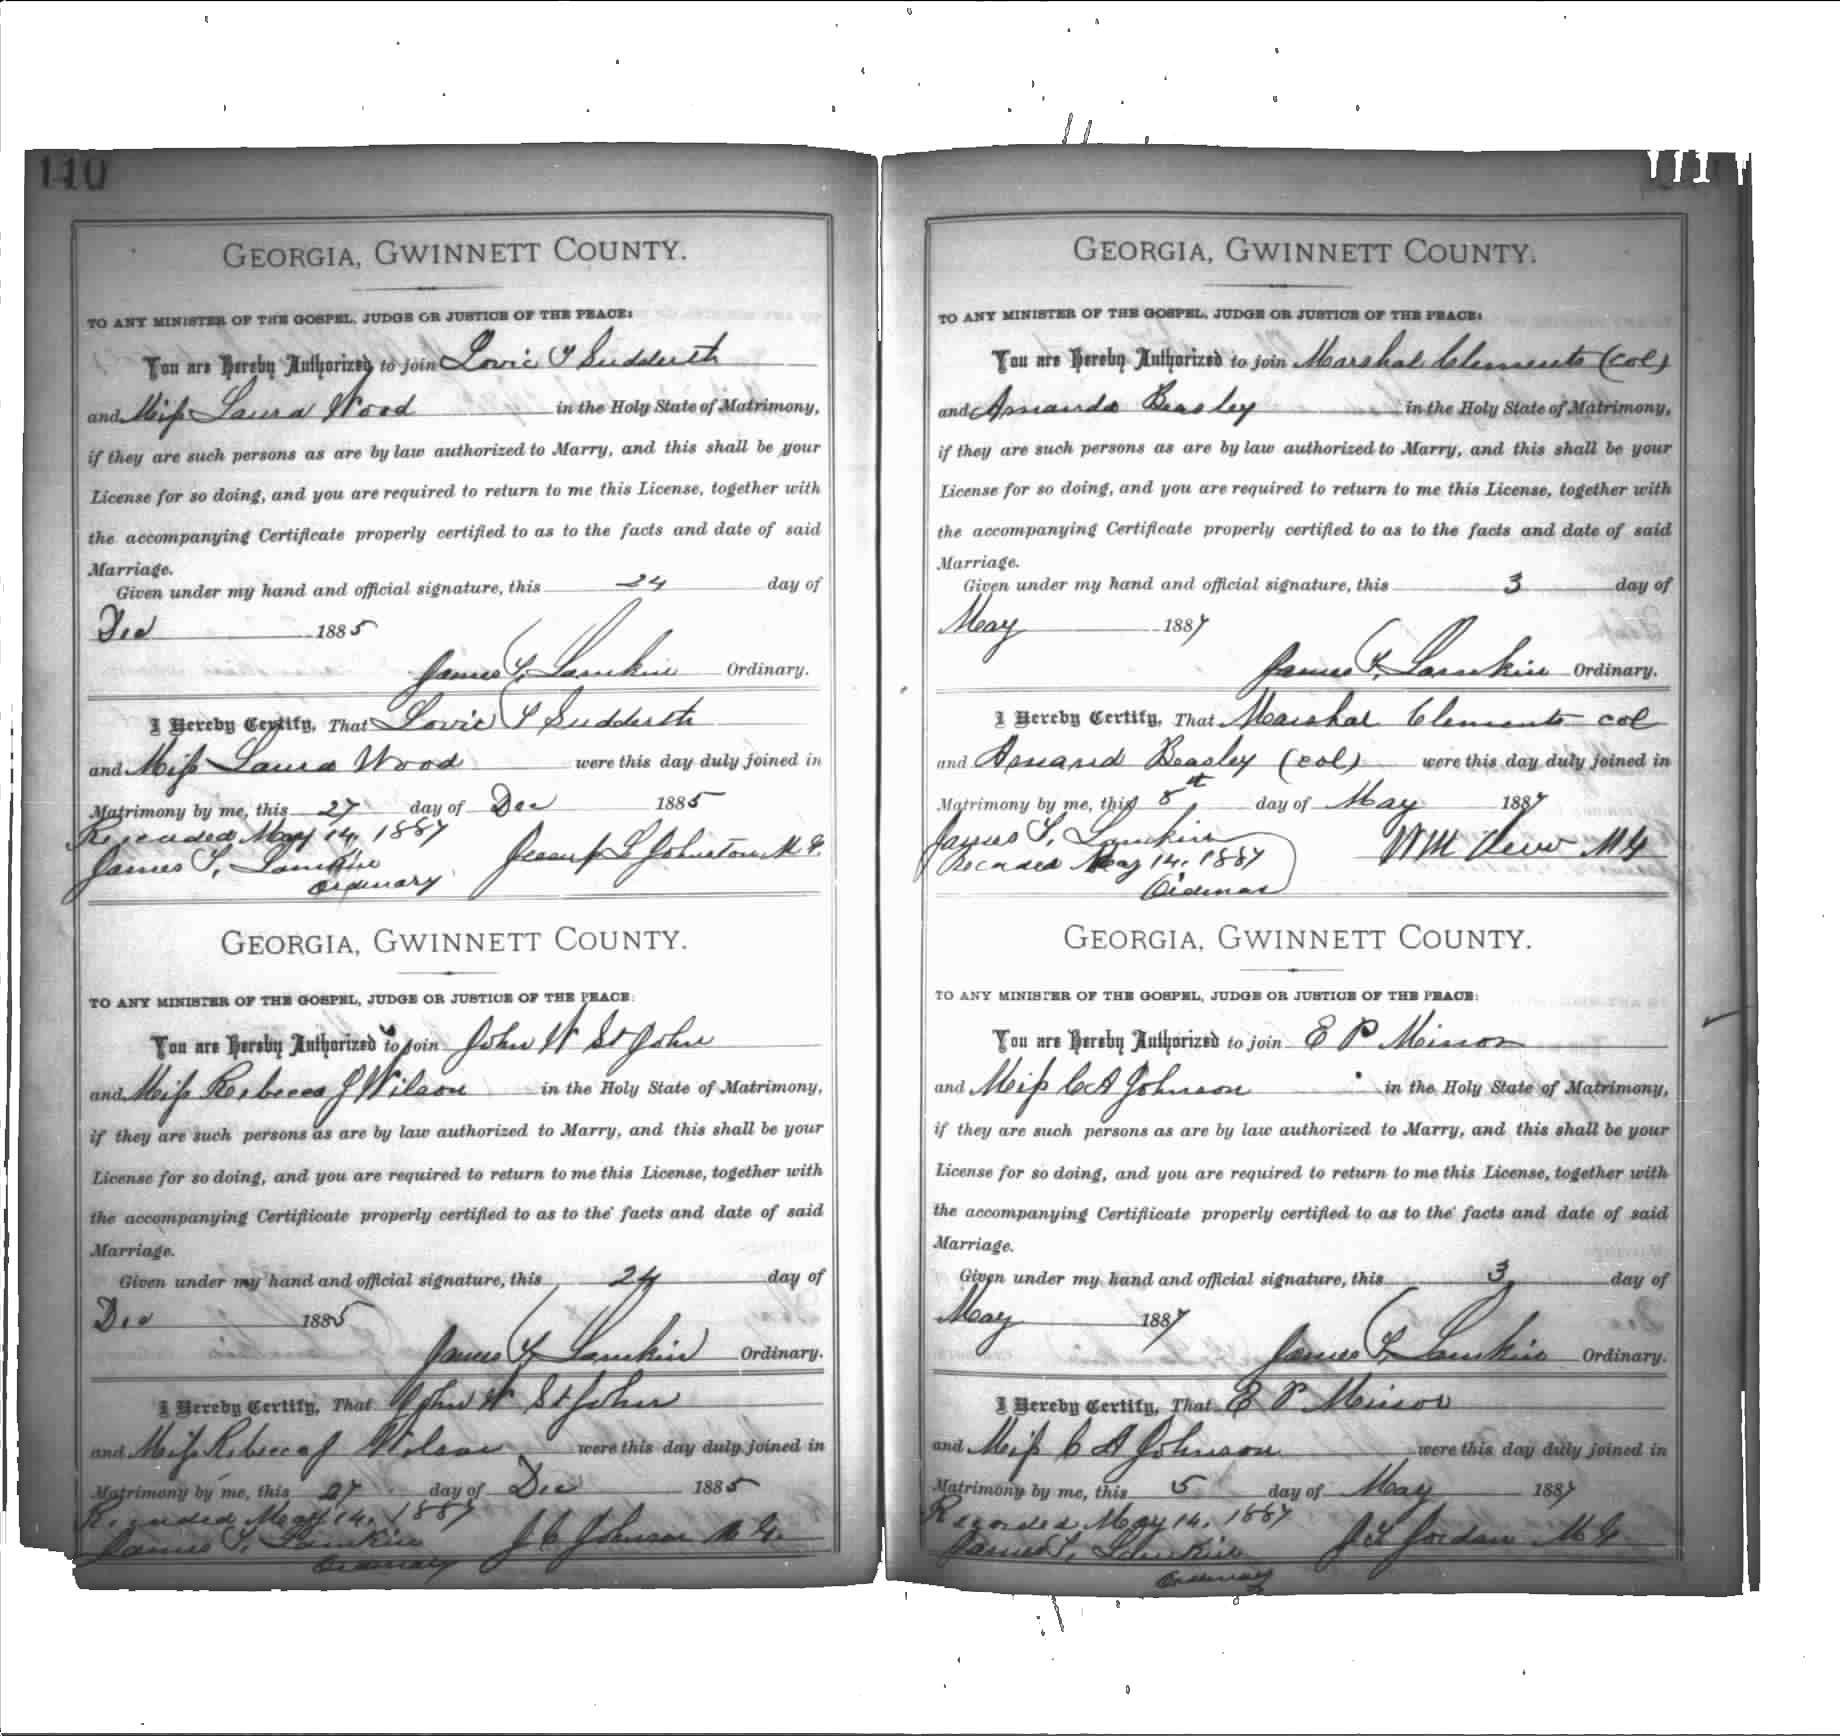 110
GEORGIA, GWINNETT COUNTY.
TO ANY MINISTER OF THE GOSPEL, JUDGE OR JUSTICE OF THE PEACE:
You are Hereby Authorized to join Lovic T Sudderth
and Miss Laura Wood in the Holy State of Matrimony,
if they are such persons as are by law authorized to Marry, and this shall be your
License for so doing, and you are required to return to me this License, together with
the accompanying Certificate properly certified to as to the facts and date of said
Marriage.
Given under my hand and official signature, this 24 day of
Dec 1885
James T. Lamkin Ordinary.
I Hereby Certify, That Lovic T Sudderth
and Miss Laura Wood were this day duly joined in
Matrimony by me, this 27 day of Dec 1885
Recorded May 14, 1887
James T. Lamkin Johnston M.G.
Ordinary
GEORGIA, GWINNETT COUNTY.
TO ANY MINISTER OF THE GOSPEL, JUDGE OR JUSTICE OF THE PEACE:
You are Hereby Authorized to join John W St John
and Miss Rebecca J Wilson in the Holy State of Matrimony,
if they are such persons as are by law authorized to Marry, and this shall be your
License for so doing, and you are required to return to me this License, together with
the accompanying Certifiicate properly certified to as to the facts and date of said
Marriage.
Given under my hand and official signature, this 24 day of
Dec 1885
James T. Lamkin Ordinary.
I Hereby Certify, That John W St John
and Miss Rebecca J Wilson were this day duly joined in
Matrimony by me, this 27 day of Dec 1885
Recorded May 14, 1887
James T. Lamkin J C Johnson M.G.
Ordinary
111
GEORGIA, GWINNETT COUNTY.
TO ANY MINISTER OF THE GOSPEL, JUDGE OR JUSTICE OF THE PEACE:
You are Hereby Authorized to join Marshal Clements (col)
and Amanda Beasley in the Holy State of Matrimony,
if they are such persons as are by law authorized to Marry, and this shall be your
License for so doing, and you are required to return to me this License, together with
the accompanying Certificate properly certified to as to the facts and date of said
Marriage.
Given under my hand and official signature, this 3 day of
May 1887
James T. Lamkin Ordinary.
I Hereby Certify, That Marshal Clements col
and Amand Beasley (col) were this day duly joined in
Matrimony by me, this 8 day of May 1887
James T. Lamkin
Recorded May 14, 1887 WM M G
Ordinary
GEORGIA, GWINNETT COUNTY.
TO ANY MINISTER OF THE GOSPEL, JUDGE OR JUSTICE OF THE PEACE:
You are Hereby Authorized to join E P Minor
and Miss C A Johnson in the Holy State of Matrimony,
if they are such persons as are by law authorized to Marry, and this shall be your
License for so doing, and you are required to return to me this License, together with
the accompanying Certifiicate properly certified to as to the facts and date of said
Marriage.
Given under my hand and official signature, this 3 day of
May 1887
James T. Lamkin Ordinary.
I Hereby Certify, That E P Minor
and Miss C A Johnson were this day duly joined in
Matrimony by me, this 5 day of May 1887
Recorded May 14, 1887
James T. Lamkin J T Jordan M G
Ordinary